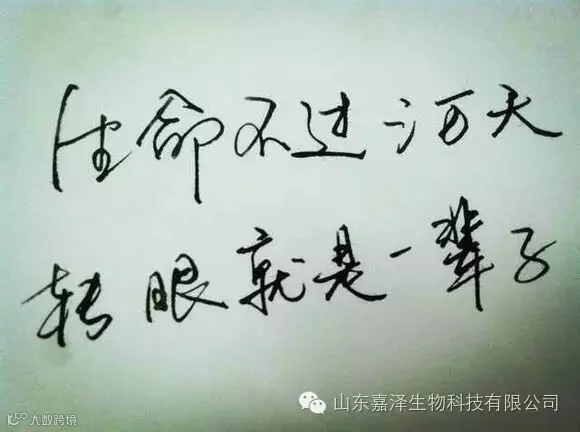 性命不过三万天
转眼就是一辈子
山东嘉泽生物科技有限公司
大数跨境